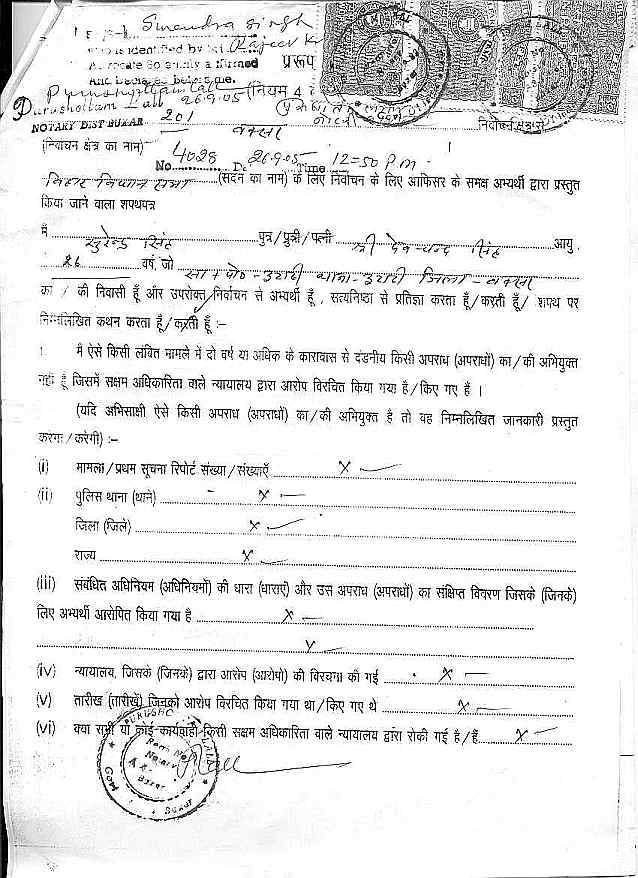 Surendra Singh
who is identified by Sri Rajeev K
Advocate Solemnly affirmed
And Declared before me.
प्ररूप
Purushottam Lall 26.9.05
(नियम 4
Purushottam Lall
NOTARY DIST BUXAR
201 बक्सर
निर्वाचन क्षेत्र से
(निर्वाचन क्षेत्र का नाम)
No. 4028 26.9.05 Time 12=50 P.m.
बिहार विधान सभा (सदन का नाम) के लिए निर्वाचन के लिए आफिसर के समक्ष अभ्यर्थी द्वारा प्रस्तुत
किया जाने वाला शपथपत्र
मैं सुरेन्द्र सिंह पुत्र/पुत्री/पत्नी श्री देव चन्द सिंह आयु
26 वर्ष, जो सा + पो०- थाना- जिला - बक्सर
का / की निवासी हूँ और उपरोक्त निर्वाचन से अभ्यर्थी हूँ , सत्यनिष्ठा से प्रतिज्ञा करता हूँ/करती हूँ/ शपथ पर
निम्नलिखित कथन करता हूँ/करती हूँ :-
1 मैं ऐसे किसी लंबित मामले में दो वर्ष या अधिक के कारावास से दंडनीय किसी अपराध (अपराधों) का/की अभियुक्त
नहीं हूँ जिसमें सक्षम अधिकारिता वाले न्यायालय द्वारा आरोप विरचित किया गया है/किए गए हैं ।
(यदि अभिसाक्षी ऐसे किसी अपराध (अपराधों) का/की अभियुक्त है तो वह निम्नलिखित जानकारी प्रस्तुत
करेगा/करेगी) :-
(i) मामला/प्रथम सूचना रिपोर्ट संख्या/संख्याएँ X
(ii) पुलिस थाना (थाने) X
जिला (जिले) X
राज्य X
(iii) संबंधित अधिनियम (अधिनियमों) की धारा (धाराएं) और उस अपराध (अपराधों) का संक्षिप्त विवरण जिसके (जिनके)
लिए अभ्यर्थी आरोपित किया गया है X
X
(iv) न्यायालय, जिसके (जिनके) द्वारा आरोप (आरोपो) की विरचना की गई X
(v) तारीख (तारीखें) जिनको आरोप विरचित किया गया था/किए गए थे X
(vi) क्या सभी या कोई कार्यवाही किसी सक्षम अधिकारिता वाले न्यायालय द्वारा रोकी गई है/हैं X
Notary
Buxar
Govt